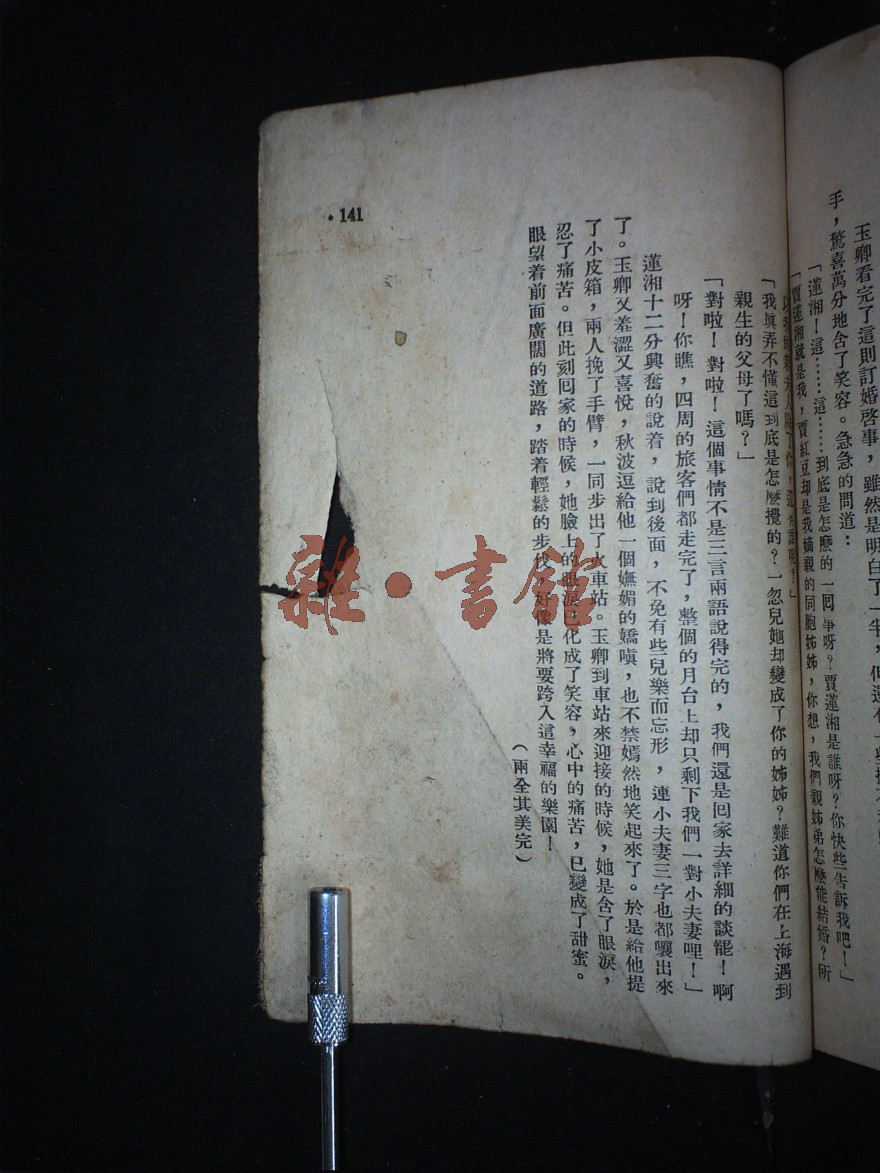 玉卿看完了這則訂婚啓事，雖然是明白了一半，但還有一些
手，驚喜萬分地含了笑容。急急的問道：
「蓮湘！這……這……到底是怎麽的一回事呀？賈蓮湘是誰呀？你快些告訴我吧！」
「賈蓮湘就是我，賈紅豆却是我嫡親的同胞姊姊，你想，我們親姊弟怎麽能結婚？所
「我眞弄不懂這到底是怎麽攪的？一忽兒她却變成了你的姊姊？難道你們在上海遇到
親生的父母了嗎？」
「對啦！對啦！這個事情不是三言兩語說得完的，我們還是回家去詳細的談罷！啊
呀！你瞧，四周的旅客們都走完了，整個的月台上却只剩下我們一對小夫妻哩！」
蓮湘十二分興奮的說着，說到後面，不免有些兒樂而忘形，連小夫妻三字也都嚷出來
了。玉卿又羞澀又喜悅，秋波逗給他一個嫵媚的嬌嗔，也不禁嫣然地笑起來了。於是給他提
了小皮箱，兩人挽了手臂，一同步出了火車站。玉卿到車站來迎接的時候，她是含了眼淚，
忍了痛苦。但此刻回家的時候，她臉上的眼淚已化成了笑容，心中的痛苦，已變成了甜蜜。
眼望着前面廣闊的道路，踏着輕鬆的步伐，好像是將要跨入這幸福的樂園！
（兩全其美完）
·141
雜·書館